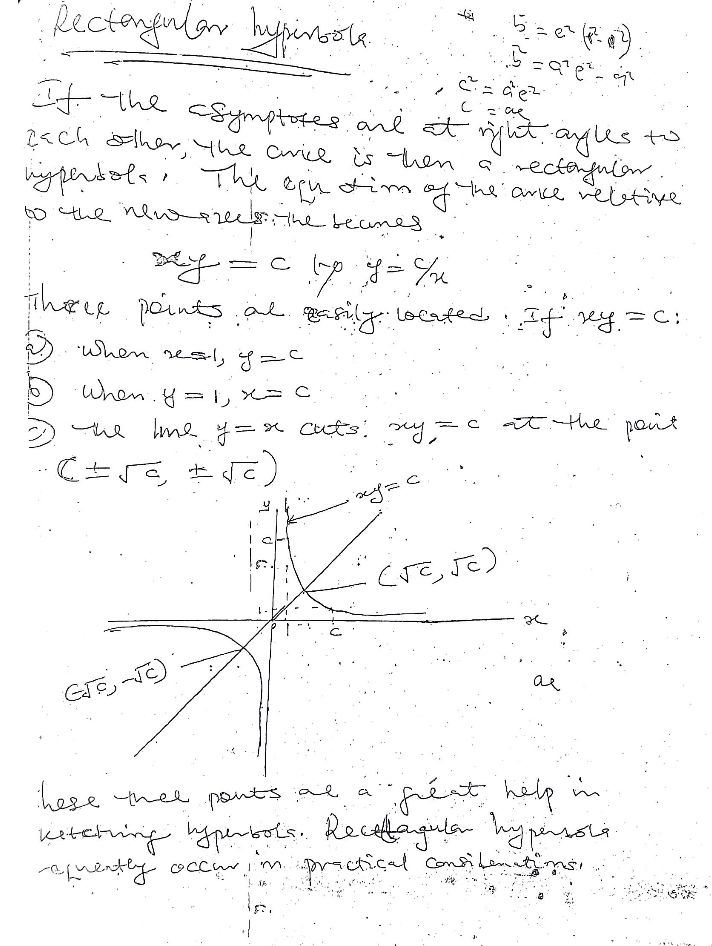 Rectangular hyperbola
c² = a²e²
c = ae
If the asymptotes are at right angles to
each other, the curve is then a rectangular
hyperbola. The equation of the curve relative
to the new axes the becomes
xy = c y = c/x
Three points are easily located. If xy = c:
a) when x=1, y=c
b) when y=1, x=c
c) the line y=x cuts xy=c at the point
(±√c, ±√c)
xy=c
y
c
√c
(√c, √c)
x
c
(-√c, -√c)
ae
hese three points are a great help in
ketching hyperbola. Rectangular hyperbola
equently occur in practical considerations.